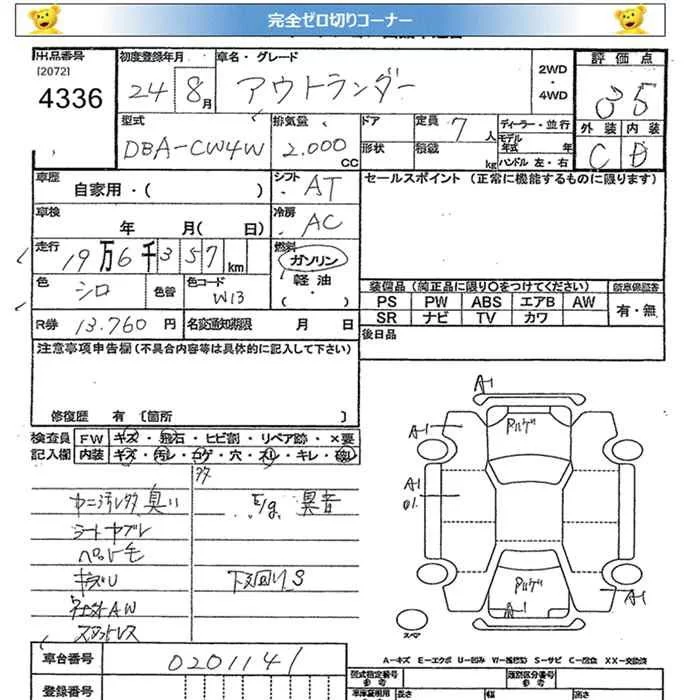 完全ゼロ切りコーナー
出品番号
[2072]
4336
初度登録年月
24 8月
車名・グレード
アウトランダー
2WD
・
4WD
評価点
3.5
外装 内装
C D
型式
DBA-CW4W
排気量
2.000 CC
ドア
形状
定員 7 人
積載 kg
ディーラー・並行
モデル年式 年
ハンドル 左・右
車歴
自家用・( )
シフト
AT
セールスポイント (正常に機能するものに限ります)
車検
年 月( 日)
冷房
AC
走行
19万6千357 km
燃料
ガソリン
軽油
・
( )
色
シロ
色替
色コード
W13
装備品(純正品に限り○をつけてください)
PS PW ABS エアB AW
SR ナビ TV カワ
新車保証書
有・無
R券 13.760 円
名変通知期限 月 日
後日品
注意事項申告欄(不具合内容等は具体的に記入して下さい)
修復歴 有 〔箇所 〕
検査員
記入欄
FW キズ・飛石・ヒビ割・リペア跡・×要
内装 キズ・汚レ・コゲ・穴・スレ・キレ・破レ
臭い
Eg 異音
シートヤブレ
ペット毛
キズU
下回りS
社外AW
スペアレス
A-1
A-1
A-1
A-1
A-1
スペア
A-キズ E-エクボ U-凹み W-補修跡 S-サビ C-腐食 XX-交換済
車台番号
0201141
登録番号
型式指定番号
参考
類別区分番号
参考
車庫証明用
長さ 幅 高さ